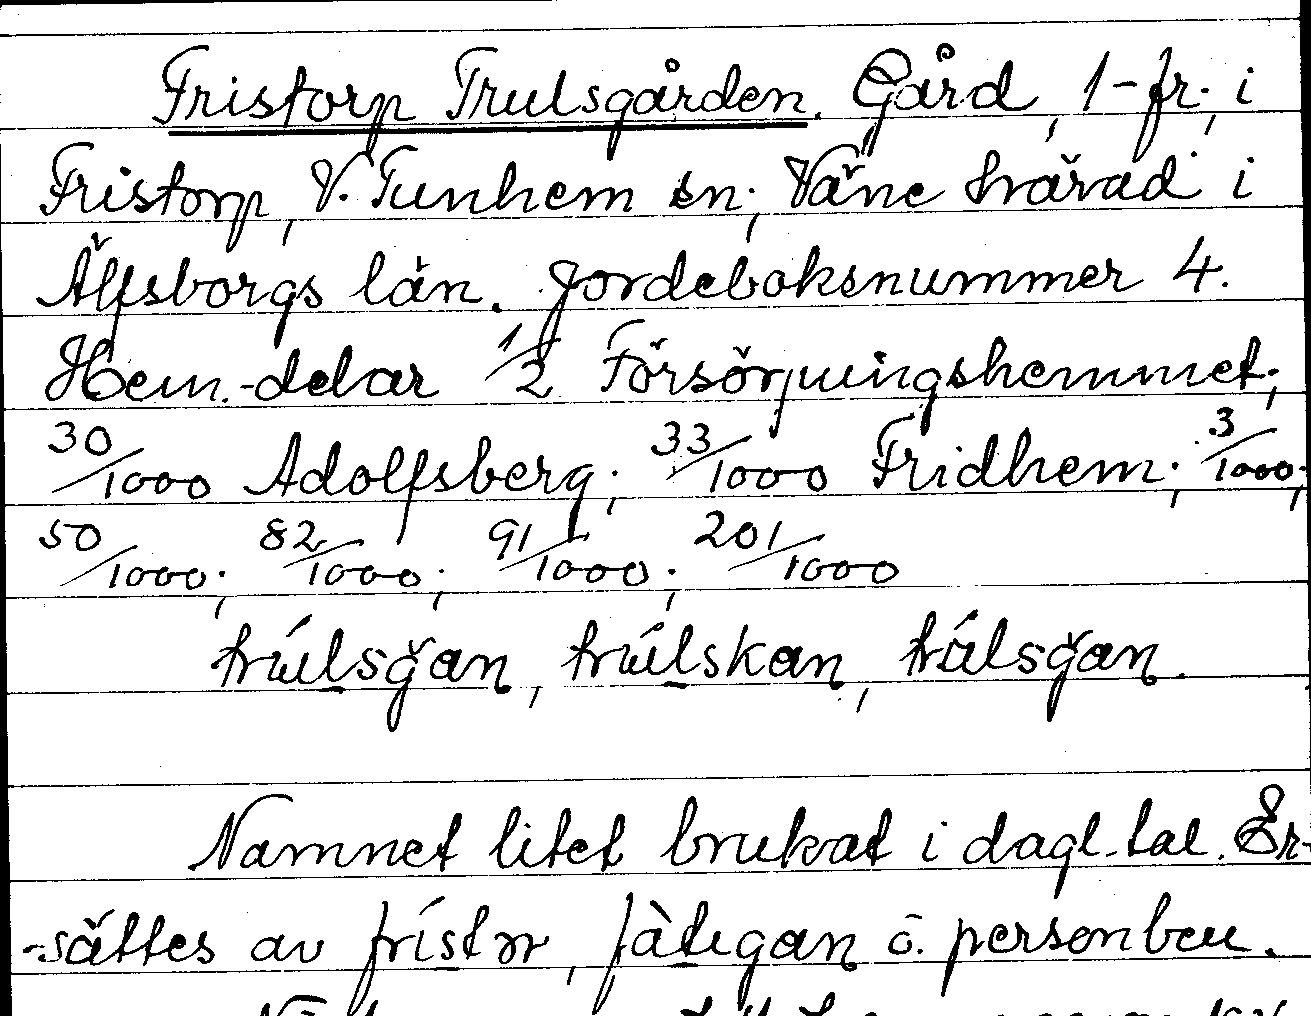 Fristorp Trulsgården. Gård, 1-fr., i
Fristorp, V. Tunhem sn; Väne härad i
Älfsborgs län. Jordeboksnummer 4.
Hem.-delar 1/2 Försörjningshemmet;
30/1000 Adolfsberg; 33/1000 Fridhem; 3/1000;
50/1000; 82/1000; 91/1000; 201/1000
trúlsğan, trúlskan, trúlsğan.
Namnet litet brukat i dagl. tal. Er-
-sättes av frístor, fàtigan o. personben.